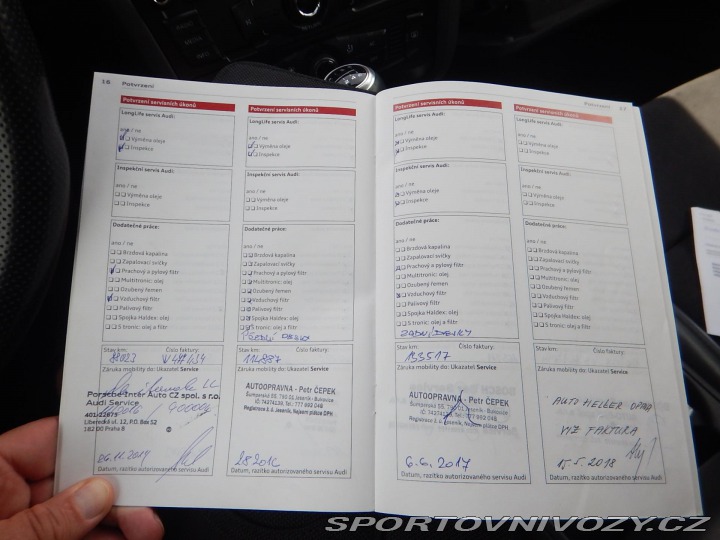 16 Potvrzení
Potvrzení servisních úkonů
LongLife servis Audi:
ano / ne
Výměna oleje
Inspekce
Inspekční servis Audi:
ano / ne
Výměna oleje
Inspekce
Dodatečné práce:
ano / ne
Brzdová kapalina
Zapalovací svíčky
Prachový a pylový filtr
Multitronic: olej
Ozubený řemen
Vzduchový filtr
Palivový filtr
Spojka Haldex: olej
S tronic: olej a filtr
Stav km: Číslo faktury:
Záruka mobility do: Ukazatel Service
Porsche Inter Auto CZ spol. s r.o.
Audi Service
Liberecká ul. 12, P.O. Box 52
182 00 Praha 8
26.11.2014
Datum, razítko autorizovaného servisu Audi
Potvrzení servisních úkonů
LongLife servis Audi:
ano / ne
Výměna oleje
Inspekce
Inspekční servis Audi:
ano / ne
Výměna oleje
Inspekce
Dodatečné práce:
ano / ne
Brzdová kapalina
Zapalovací svíčky
Prachový a pylový filtr
Multitronic: olej
Ozubený řemen
Vzduchový filtr
Palivový filtr
Spojka Haldex: olej
S tronic: olej a filtr
Stav km: Číslo faktury:
114887
Záruka mobility do: Ukazatel Service
AUTOOPRAVNA - Petr ČEPEK
Šumperská 55, 790 01 Jeseník - Bukovice
Datum, razítko autorizovaného servisu Audi
Potvrzení 17
Potvrzení servisních úkonů
LongLife servis Audi:
ano / ne
Výměna oleje
Inspekce
Inspekční servis Audi:
ano / ne
Výměna oleje
Inspekce
Dodatečné práce:
ano / ne
Brzdová kapalina
Zapalovací svíčky
Prachový a pylový filtr
Multitronic: olej
Ozubený řemen
Vzduchový filtr
Palivový filtr
Spojka Haldex: olej
S tronic: olej a filtr
Stav km: Číslo faktury:
133517
Záruka mobility do: Ukazatel Service
AUTOOPRAVNA - Petr ČEPEK
Šumperská 55, 790 01 Jeseník - Bukovice
6.6.2017
Datum, razítko autorizovaného servisu Audi
Potvrzení servisních úkonů
LongLife servis Audi:
ano / ne
Výměna oleje
Inspekce
Inspekční servis Audi:
ano / ne
Výměna oleje
Inspekce
Dodatečné práce:
ano / ne
Brzdová kapalina
Zapalovací svíčky
Prachový a pylový filtr
Multitronic: olej
Ozubený řemen
Vzduchový filtr
Palivový filtr
Spojka Haldex: olej
S tronic: olej a filtr
Stav km: Číslo faktury:
Záruka mobility do: Ukazatel Service
AUTO HELLER
VIZ FAKTURA
15.5.2018
Datum, razítko autorizovaného servisu Audi
SPORTOVNIVOZY.CZ